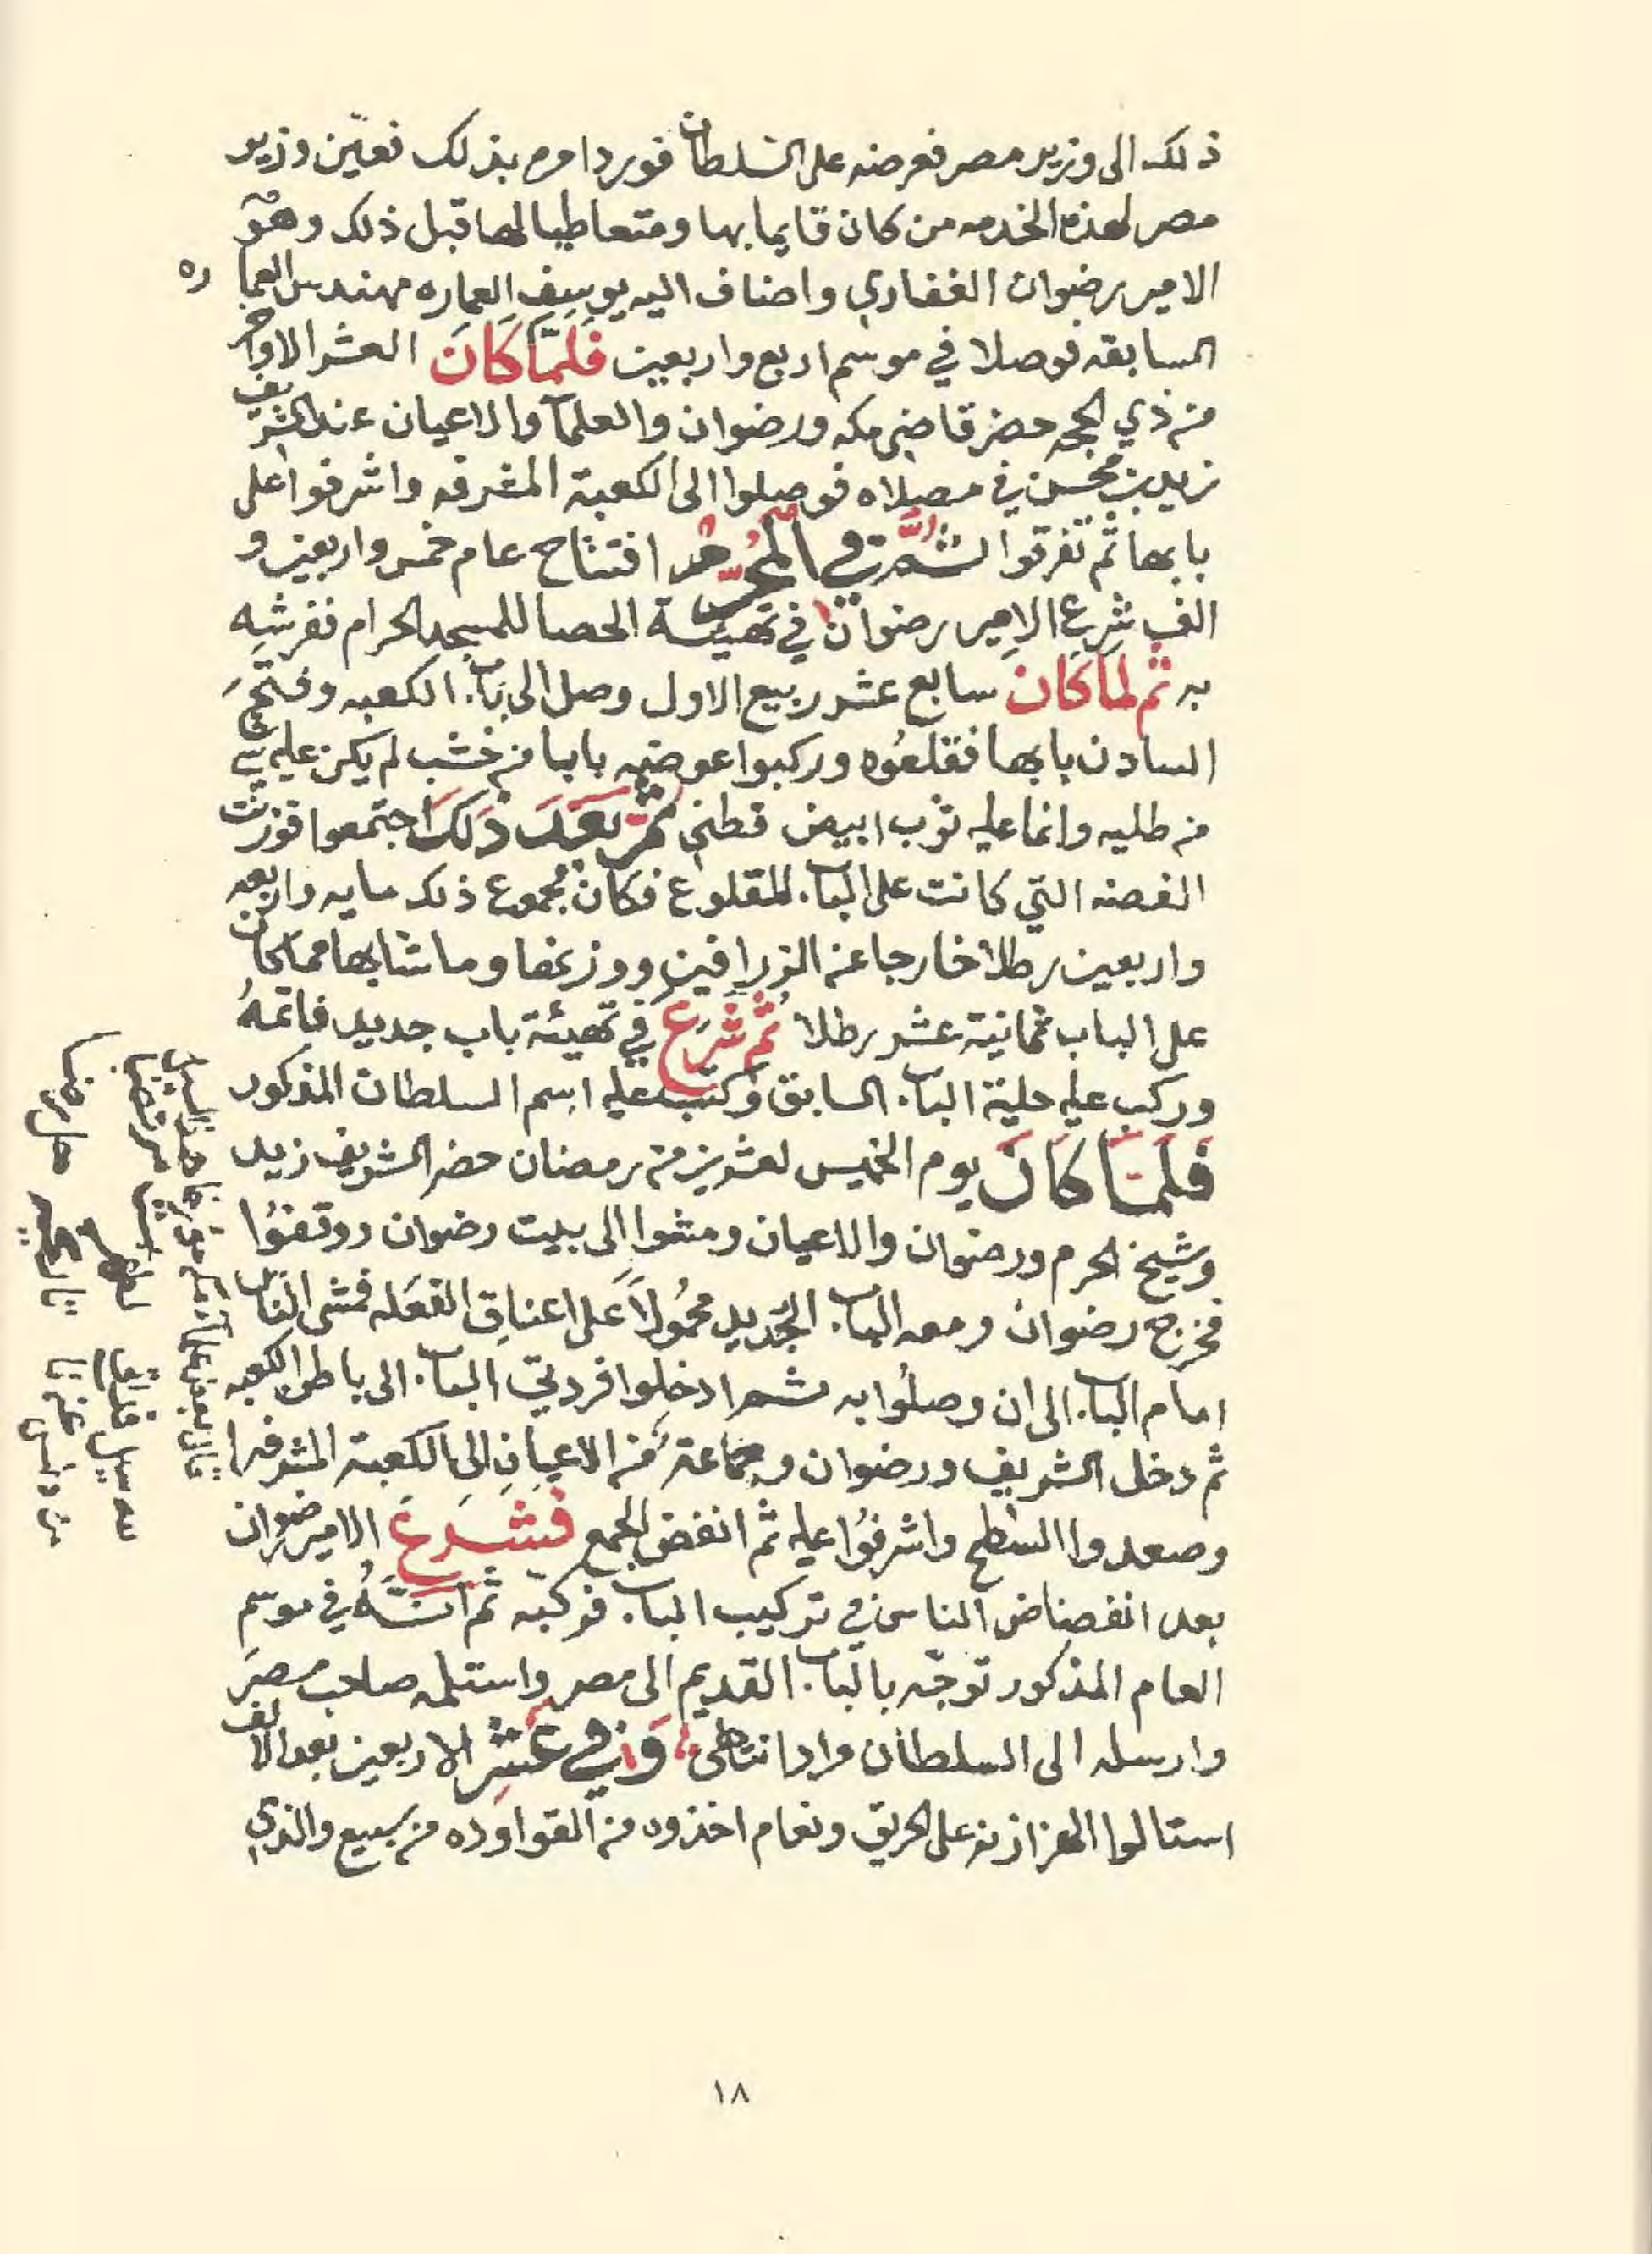 ذلك الى وزير مصر فعرضه على السلطان فورد امره بذلك فعيّن وزير
مصر لهذه الخدمه من كان قايما بها ومتعاطيا لها قبل ذلك وهو
الامير رضوان الفقاري واضاف اليه يوسف العماره مهندس العماره
السابقه فوصلا في موسم اربع واربعين فَلمّا كَانَ العشر الاواخر
من ذي الحجه حضر قاضي مكه ورضوان والعلمآ والاعيان عند الشريف
زيد بن محسن في مصلاه فوصلوا الى الكعبة المشرفه واشرفوا على
بابها ثم تفرقوا ثمّ في المُحرّم افتتاح عام خمس واربعين و
الف شرع الامير رضوان في تهيئة الحصا للمسجد الحرام ففرشه
به ثم لما كان سابع عشر ربيع الاول وصل الى باب الكعبه وفتح
السادن بابها فقلعُوه وركبوا عوضه بابا من خشب لم يكن عليه شي
من طليه وانما عليه ثوب ابيض قطني ثمّ بَعَدَ ذَلكَ اجتمعوا فوزنت
الفضه التي كانت على الباب المقلوع فكان مجموع ذلك مايه واربعه
واربعين رطلا خارجا عن الزرافين ووزنها وما شابهها مما كان
على الباب ثمانية عشر رطلا ثُم شَرَع في تهيئة باب جديد فاتمهُ
وركب عليه حلية الباب السابق وكتب عليه اسم السلطان المذكور
فَلَمّا كَانَ يوم الخميس لعشرين من رمضان حضر الشريف زيد
وشيخ الحرم ورضوان والاعيان ومشوا الى بيت رضوان ووقفوُا
فخرج رضوان ومعه الباب الجديد محمُولاً عَلى اعناق الفعَله فمشى الناس
امام الباب الى ان وصلُوا به ثم ادخلوا فردتي الباب الى باطن الكعبه
ثم دخل الشريف ورضوان وجماعة من الاعيان الى الكعبة المشرفه
وصعدوا السّطح واشرفُوا عليه ثم انفض الجمع فَشَرعَ الامير رضوان
بعد انفضاض الناس في تركيب الباب فركّبه ثم انّهُ في موسم
العام المذكور توجّه بالباب القديم الى مصر واستلمه صاحب مصرَ
وارسله الى السلطان مراد انتهى وَفي عَشر الاربعين بعد الالف
استالوا على الحريق من ينبيع والذي
١٨